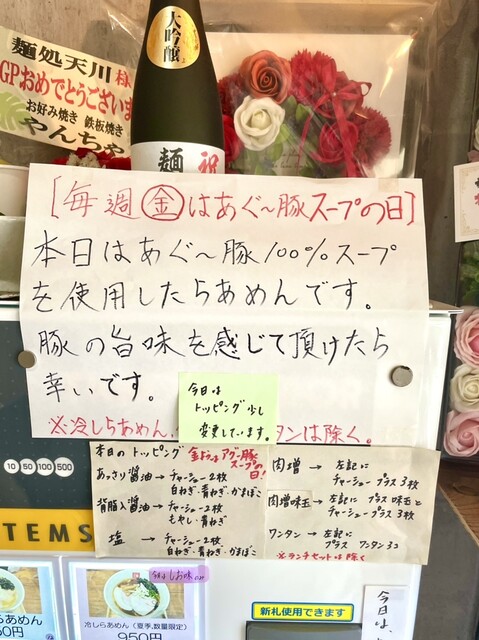 麺処天川 様
GPおめでとうございま
お好み焼き 鉄板焼き
やんちゃ
大吟醸
祝
麺
[毎週㊎はあぐ〜豚スープの日]
本日はあぐ〜豚100%スープ
を使用したらあめんです。
豚の旨味を感じて頂けたら
幸いです。
※冷しらあめん、
タンは除く。
今日は
トッピング少し
変更しています。
本日のトッピング
金ようはアグー豚
スープの日!
あっさり醤油→チャーシュー2枚
白ねぎ・青ねぎ・かまぼこ
背脂入醤油→チャーシュー2枚
もやし・青ねぎ
塩→チャーシュー2枚
白ねぎ・青ねぎ・かまぼこ
肉増→左記に
チャーシュープラス3枚
肉増味玉→左記にプラス味玉と
チャーシュープラス3枚
ワンタン→左記に
プラスワンタン3コ
※ランチセットは除く
10 50 100 500
ITEMS
しらあめん
50円
今日はしお味
冷しらあめん（夏季,数量限定）
950円
新札使用できます
今日はい